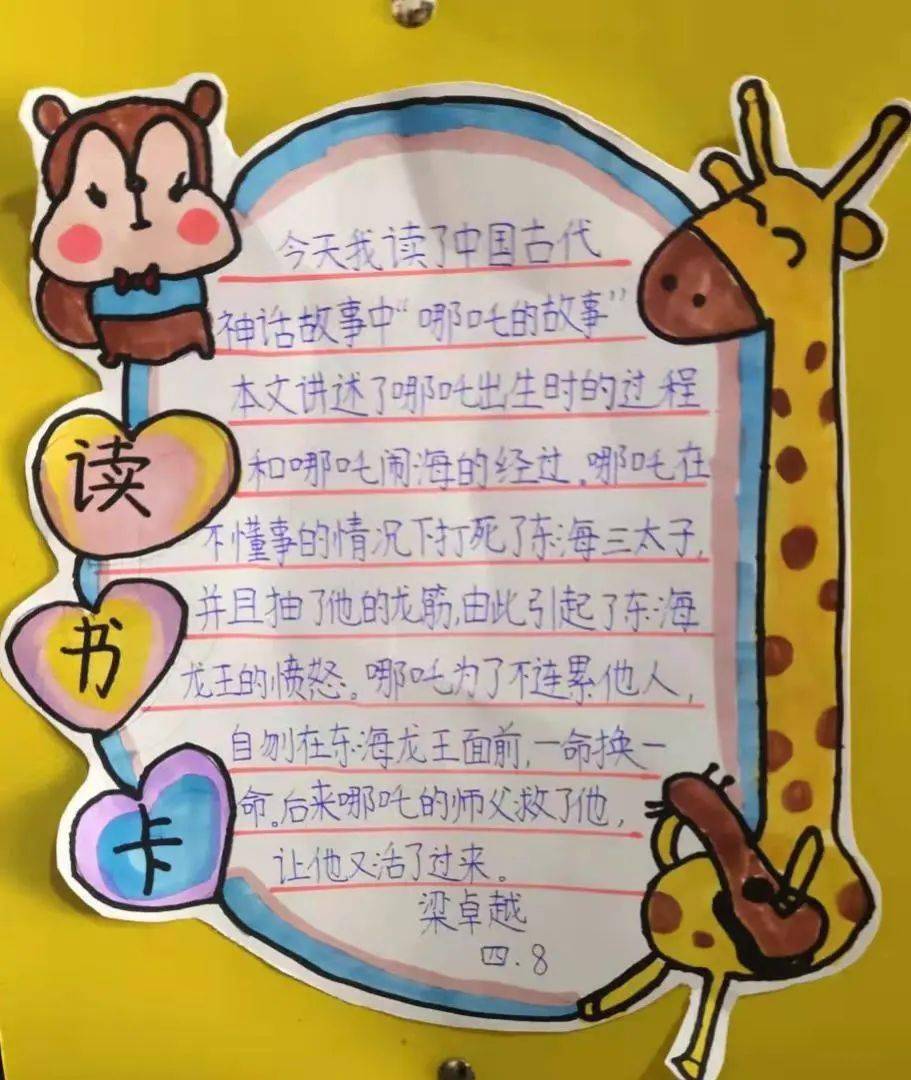 读
书
卡
今天我读了中国古代
神话故事中“哪吒的故事”
本文讲述了哪吒出生时的过程
和哪吒闹海的经过。哪吒在
不懂事的情况下打死了东海三太子,
并且抽了他的龙筋,由此引起了东海
龙王的愤怒。哪吒为了不连累他人,
自刎在东海龙王面前,一命换一
命。后来哪吒的师父救了他,
让他又活了过来。
梁卓越
四.8